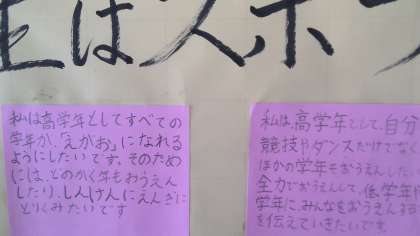 はスポ
私は高学年としてすべての
学年が、「えがお」になれる
ようにしたいです。そのため
には、どのがく年もおうえん
したり、しんけんにえんぎに
とりくみたいです
私は、高学年として、自分
競技やダンスだけでなく
ほかの学年もおうえんしたい
全力でおうえんして、低学年
学年に、みんなをおうえんする
を伝えていきたいです。